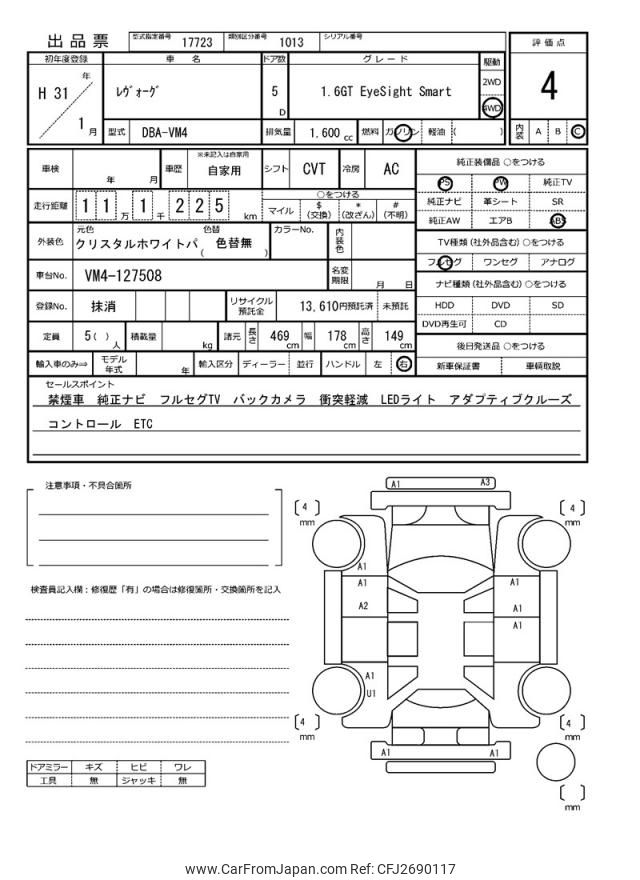 出品票 型式指定番号 17723 類別区分番号 1013 シリアル番号
初年度登録 車名 ドア数 グレード 駆動 評価点
H 31 年 1 月 レヴォーグ 5 D 1.6GT EyeSight Smart 2WD 4WD 4
型式 DBA-VM4 排気量 1,600 cc 燃料 ガソリン 軽油 ( ) 内装 A B C
車検 年 月 車歴 ※未記入は自家用 自家用 シフト CVT 冷房 AC 純正装備品 ○をつける
PS PW 純正TV
走行距離 1 1 万 1 千 2 2 5 km ○をつける
マイル $ (交換) * (改ざん) # (不明)
純正ナビ 革シート SR
純正AW エアB ABS
外装色 元色 クリスタルホワイトパ 色替 ( 色替無 ) カラーNo. 内装色
TV種類 (社外品含む) ○をつける
フルセグ ワンセグ アナログ
車台No. VM4-127508 名変期限 月 日
ナビ種類 (社外品含む) ○をつける
登録No. 抹消 リサイクル預託金 13,610円預託済 未預託
HDD DVD SD
DVD再生可 CD
定員 5( ) 人 積載量 kg 諸元 長さ 469 cm 幅 178 cm 高さ 149 cm
後日発送品 ○をつける
輸入車のみ⇒ モデル年式 年 輸入区分 ディーラー 並行 ハンドル 左 右 新車保証書 車輌取説
セールスポイント
禁煙車 純正ナビ フルセグTV バックカメラ 衝突軽減 LEDライト アダプティブクルーズ
コントロール ETC
注意事項・不具合箇所
検査員記入欄：修復歴「有」の場合は修復箇所・交換箇所を記入
A1 A3
[ 4 ] mm [ 4 ] mm
A1
A1 A1
A2 A1
A1
A1
U1
[ 4 ] mm [ 4 ] mm
A1 A1
[ ] mm
ドアミラー キズ ヒビ ワレ
工具 無 ジャッキ 無
www.CarFromJapan.com Ref: CFJ2690117